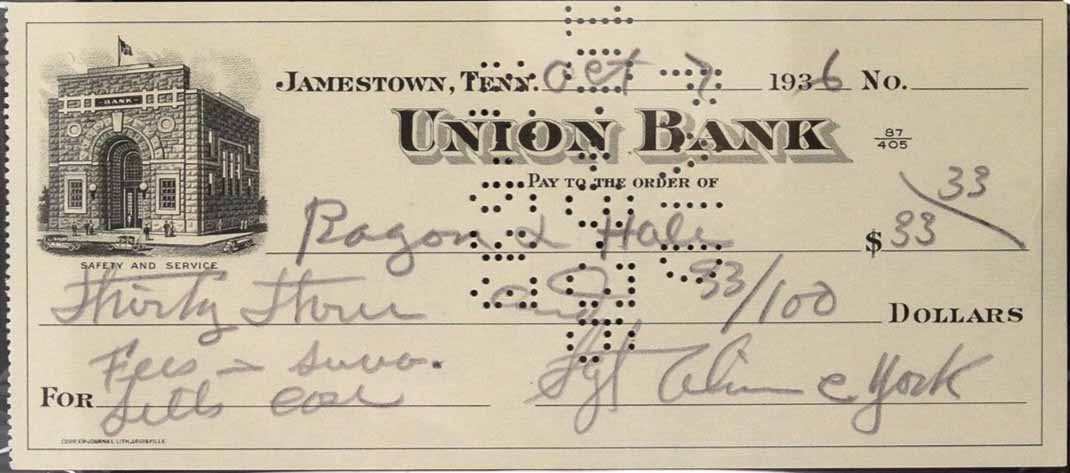 BANK
JAMESTOWN, TENN. Oct 7 1936 No.
UNION BANK 87/405
PAY TO THE ORDER OF
Ragon & Hale $33 33
SAFETY AND SERVICE
Thirty Three and 33/100 DOLLARS
Fees in
FOR case Sgt Alvin C York